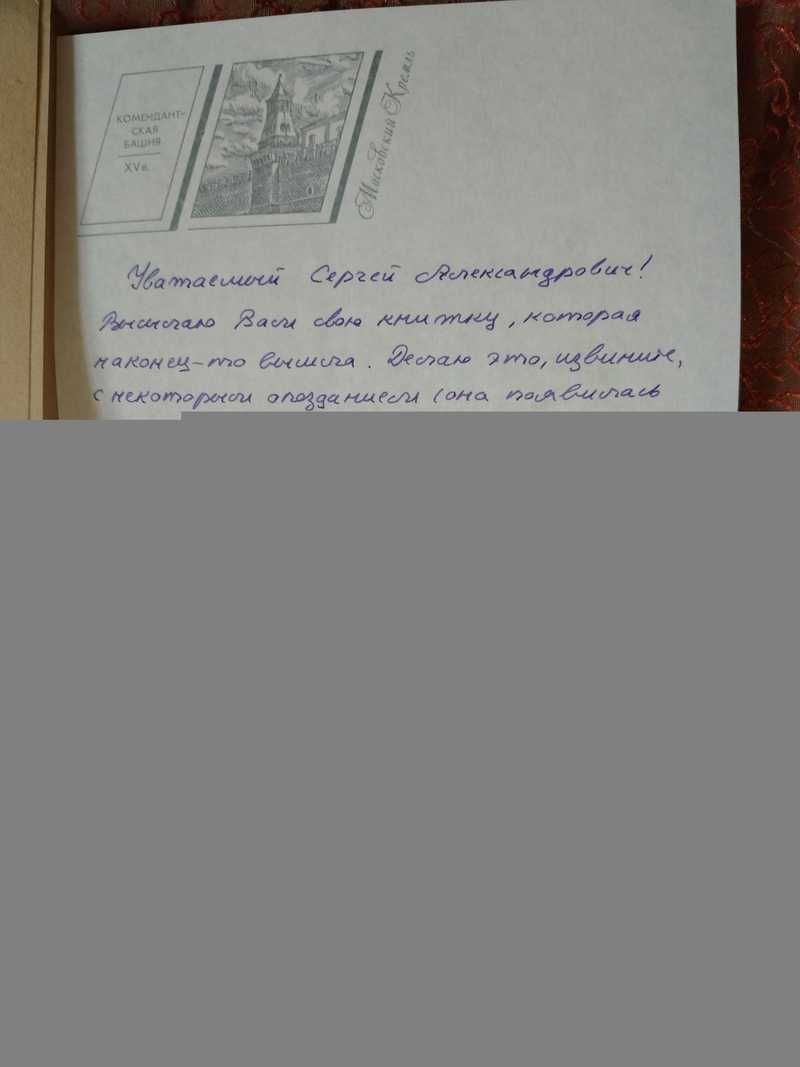 КОМЕНДАНТ-
СКАЯ
БАШНЯ
XV в.
Московский Кремль
Уважаемый Сергей Александрович!
Высылаю Вам свою книжку, которая
наконец-то вышла. Делаю это, извините,
с некоторым опозданием (она появилась